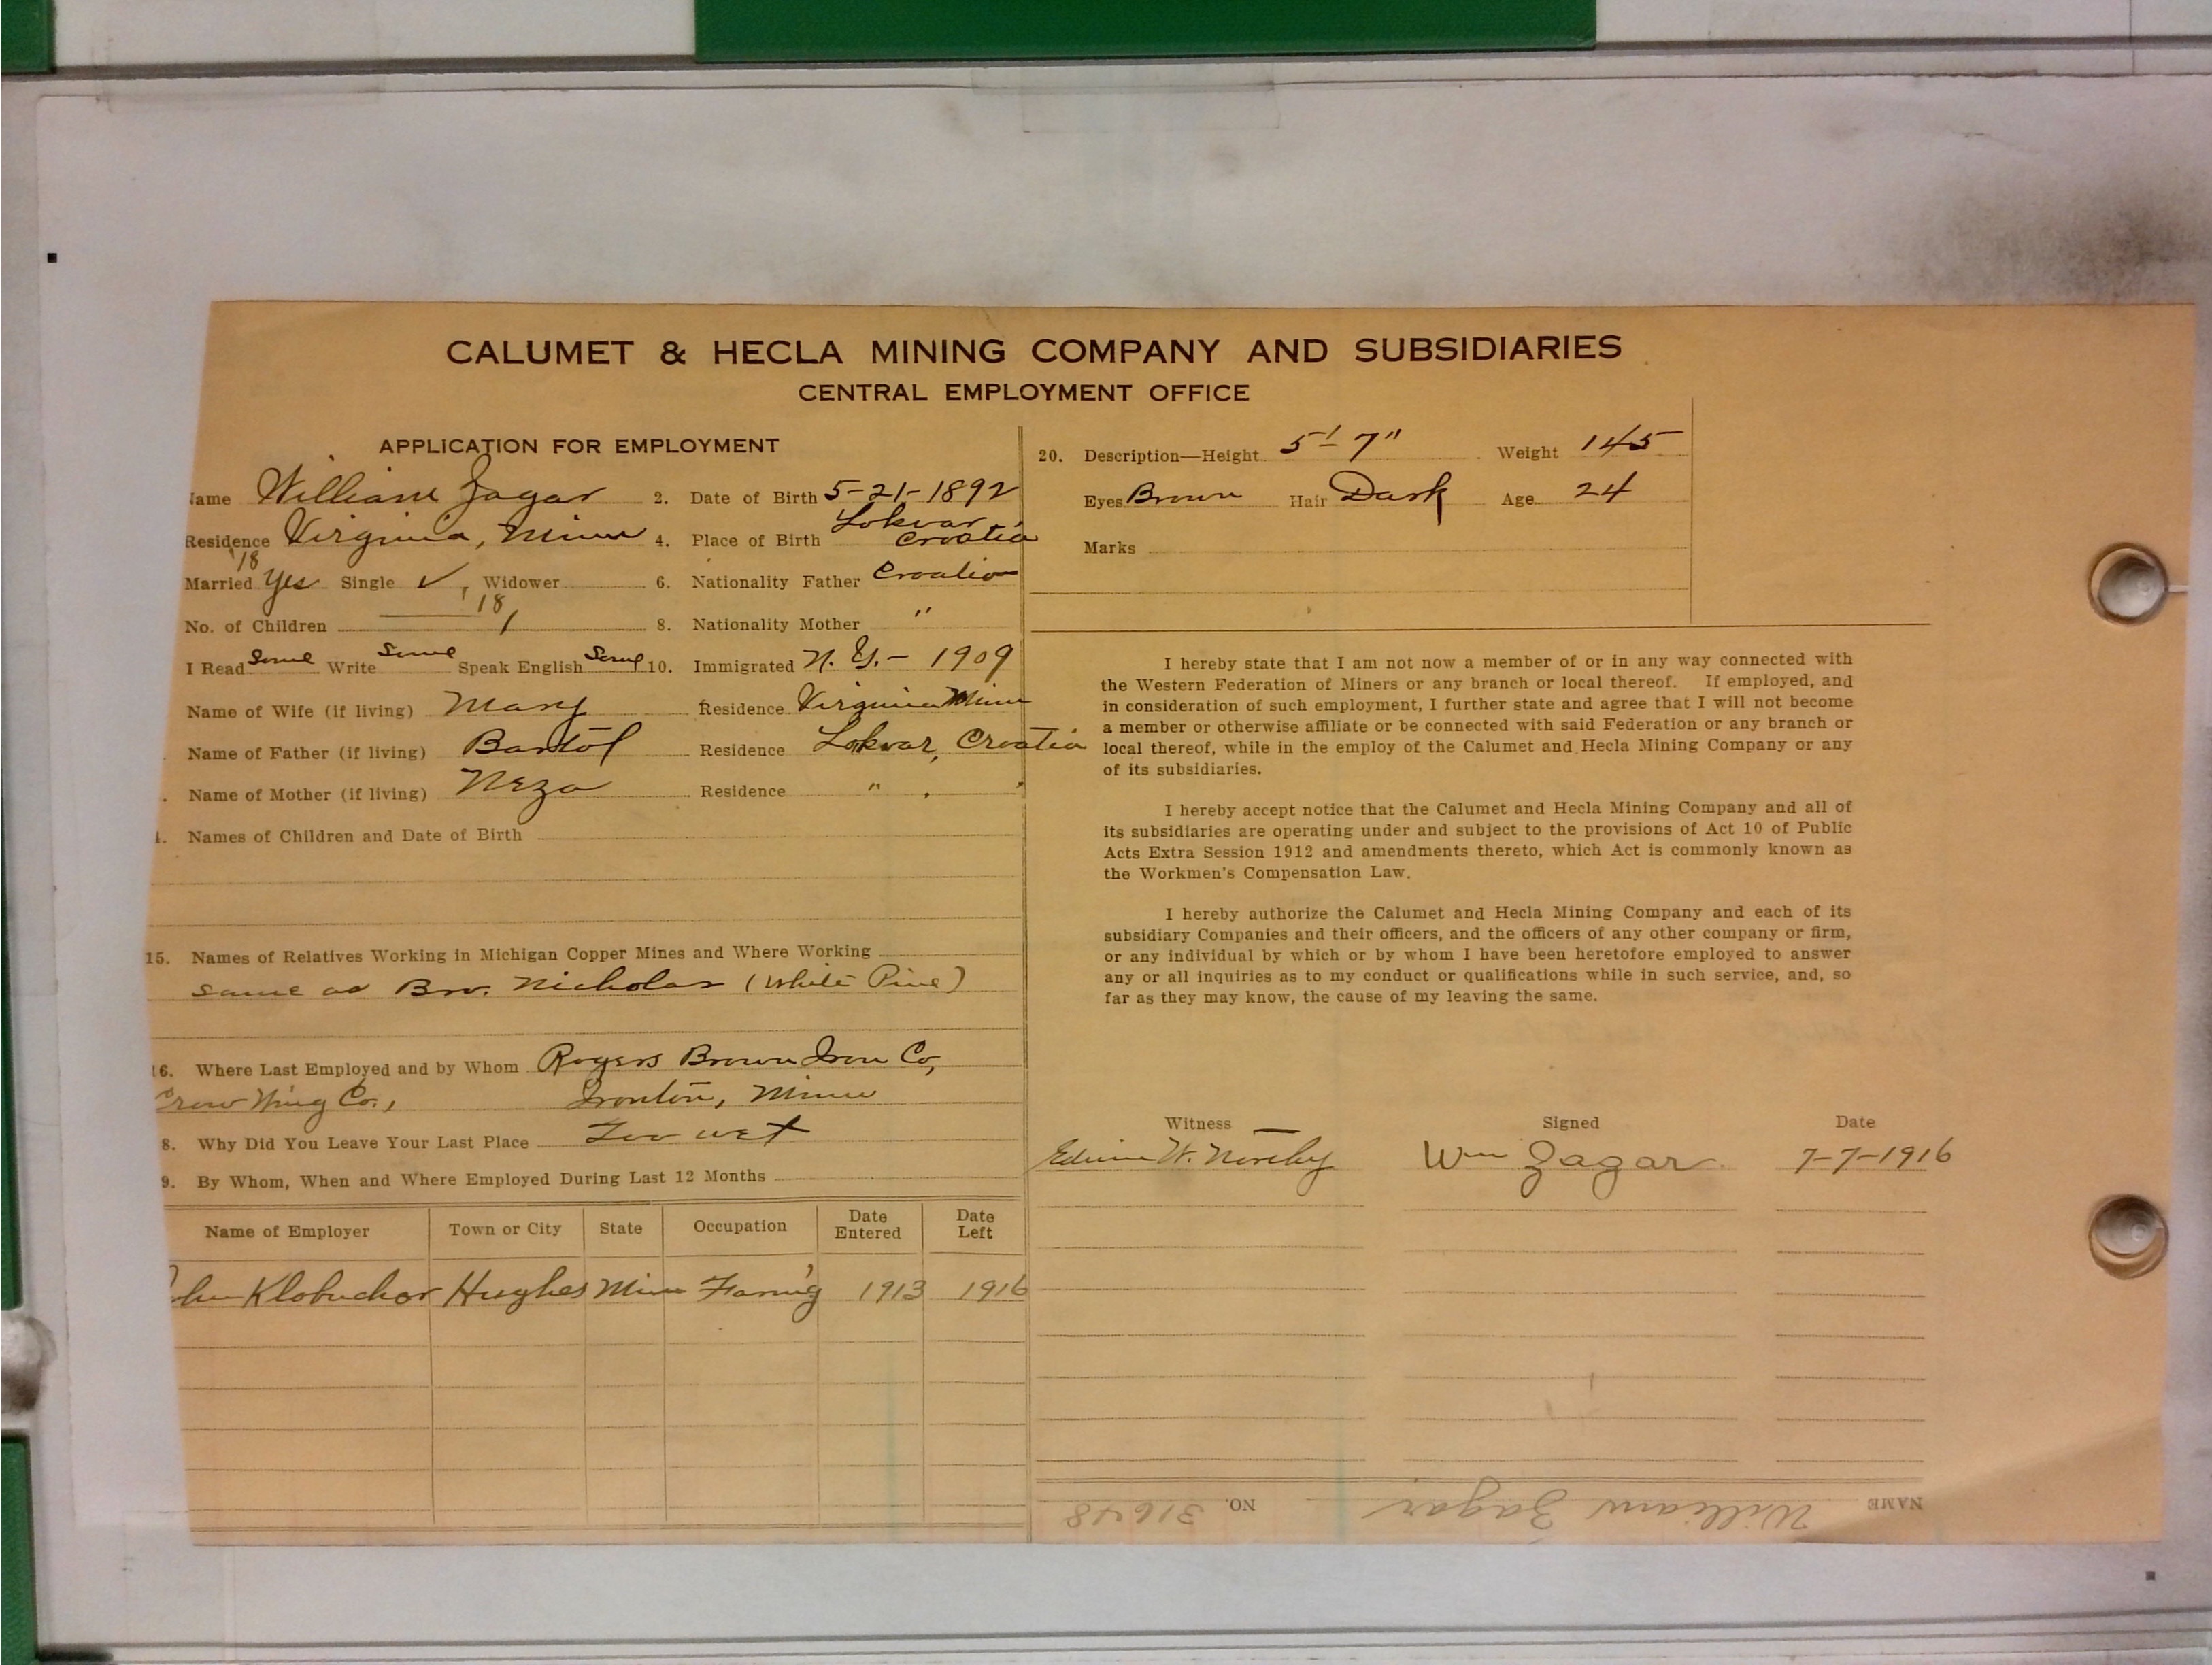 CALUMET & HECLA MINING COMPANY AND SUBSIDIARIES
CENTRAL EMPLOYMENT OFFICE
APPLICATION FOR EMPLOYMENT
Name William Zagar 2. Date of Birth 5-21-1892
Residence Virginia, Minn 4. Place of Birth Lokvar Croatia
'18
Married Yes Single ✓, Widower 6. Nationality Father Croatia
'18
No. of Children 1 8. Nationality Mother "
I Read Some Write Some Speak English Some 10. Immigrated N. Y. - 1909
Name of Wife (if living) Mary Residence Virginia Minn
Name of Father (if living) Bartol Residence Lokvar, Croatia
. Name of Mother (if living) Neza Residence " "
4. Names of Children and Date of Birth
15. Names of Relatives Working in Michigan Copper Mines and Where Working
same as Bro. Nicholas (White Pine)
16. Where Last Employed and by Whom Rogers Brown Iron Co,
Crow Wing Co., Ironton, Minn
8. Why Did You Leave Your Last Place Too wet
9. By Whom, When and Where Employed During Last 12 Months
Name of Employer Town or City State Occupation Date Entered Date Left
John Klobuchar Hughes Minn Farm'g 1913 1916
20. Description—Height 5'-7" Weight 145
Eyes Brown Hair Dark Age 24
Marks
I hereby state that I am not now a member of or in any way connected with
the Western Federation of Miners or any branch or local thereof. If employed, and
in consideration of such employment, I further state and agree that I will not become
a member or otherwise affiliate or be connected with said Federation or any branch or
local thereof, while in the employ of the Calumet and Hecla Mining Company or any
of its subsidiaries.
I hereby accept notice that the Calumet and Hecla Mining Company and all of
its subsidiaries are operating under and subject to the provisions of Act 10 of Public
Acts Extra Session 1912 and amendments thereto, which Act is commonly known as
the Workmen's Compensation Law.
I hereby authorize the Calumet and Hecla Mining Company and each of its
subsidiary Companies and their officers, and the officers of any other company or firm,
or any individual by which or by whom I have been heretofore employed to answer
any or all inquiries as to my conduct or qualifications while in such service, and, so
far as they may know, the cause of my leaving the same.
Witness Signed Date
W. Wm Zagar. 7-7-1916
NAME William Zagar NO.